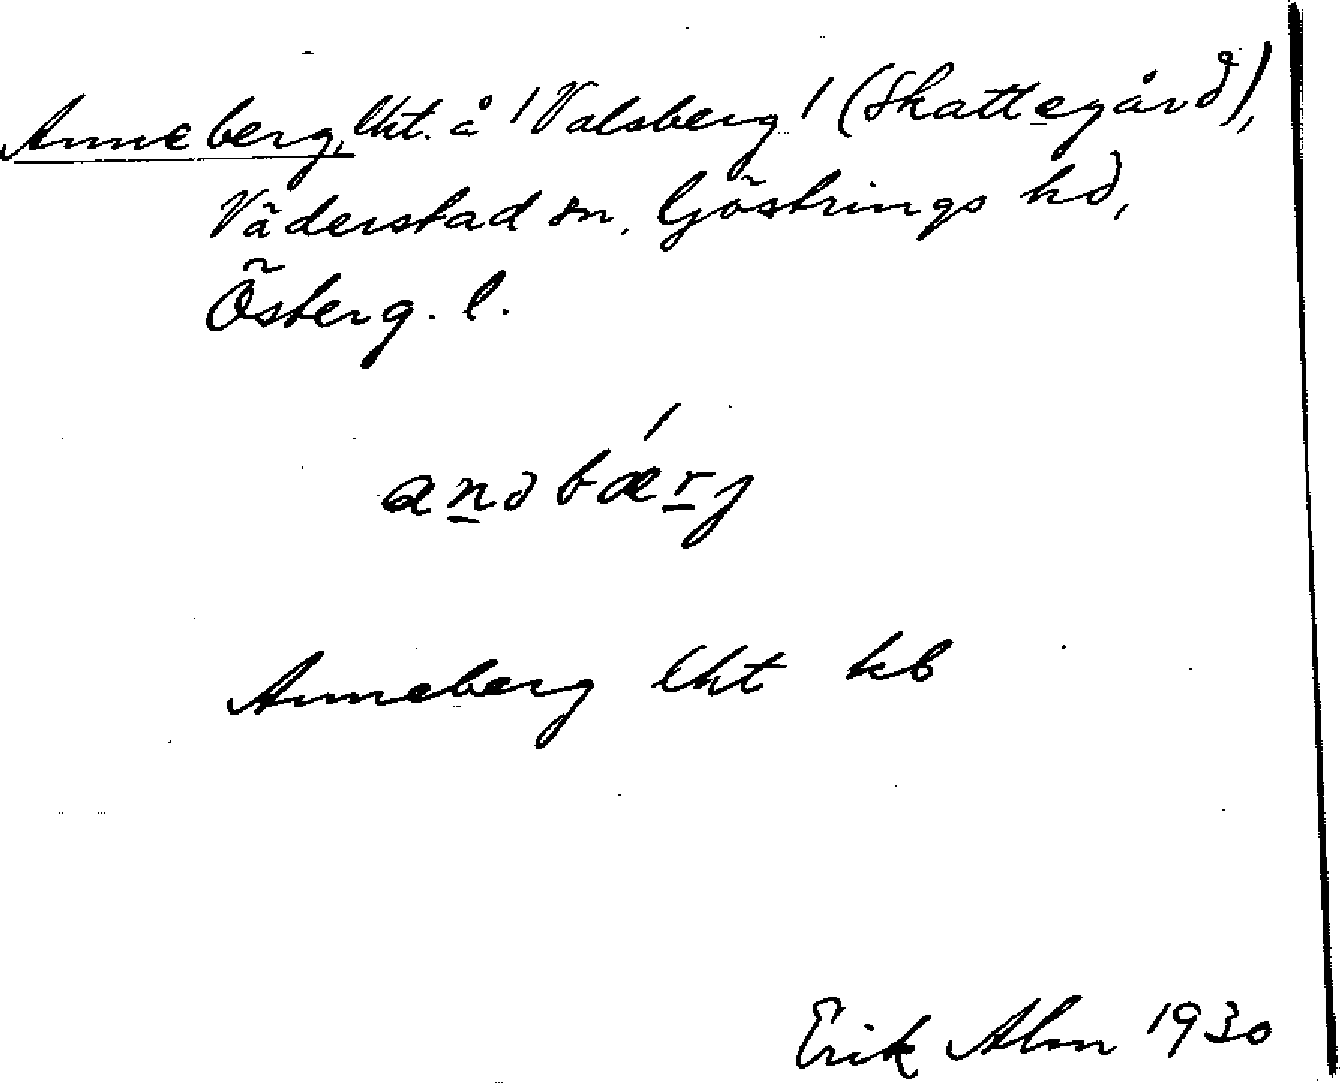 Anneberg, lht. å /Valsberg/ (Skattegård),
Väderstad sn. Göstrings hd,
Österg. l.
anəbǽrj
Anneberg lht kb
Erik Alm 1930